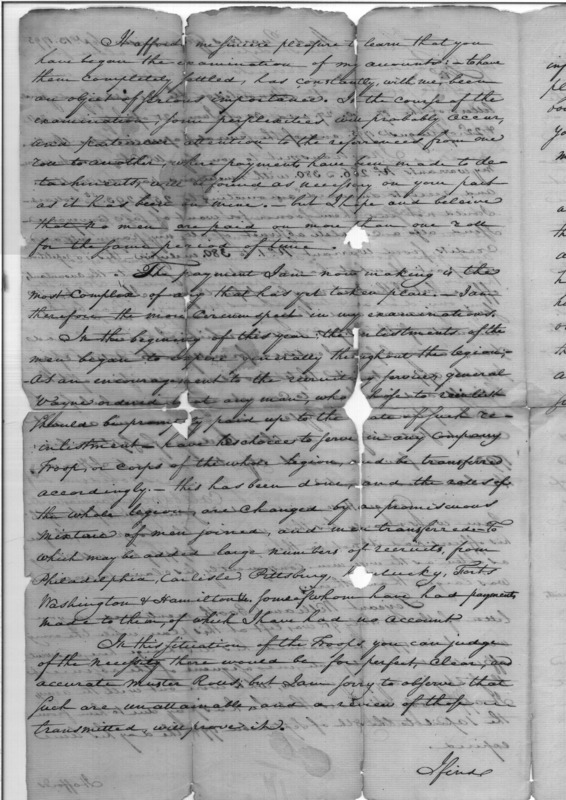 It affords me sincere pleasure to learn that you
have began the examination of my accounts:—to have
them completely settled, has constantly, with me, been
an object of serious importance. In the course of the
examination, some perplexities, will probably occur,
and patience & attention to the references from one
roll to another, where payments have been made to de-
tachments, will be found as necessary on your part
as it has been on mine.— but I hope and beleive
that no men are paid on more than one roll
for the same period of time.
The payment I am now making is the
most complex of any that has yet taken place.— I am
therefore the more circumspect in my examinations.
In the begining of this year the enlistments of the
men began to expire generally throughout the legion,
As an encouragement to the recruiting service, general
Wayne ordered that any men, who chose to reinlist
should be promptly paid up to the date of such re-
inlistment— have his choice to serve in any company
Troop, or corps of the whole legion, and be transferred
accordingly.— this has been done, and the rolls of
the whole legion, are changed by a promiscuous
mixture of men joined, and men transferred:— To
which may be added large numbers of recruits, from
Philadelphia, Carlisle, Pittsburg, Kentucky, Forts
Washington & Hamilton &c some of whom have had payments
made to them, of which I have had no account
In this situation of the Troops, you can judge
of the necessity there would be for perfect, clear, and
accurate Muster Rolls; but I am sorry to observe that
such are unattainable, and a review of those
transmitted will prove it.
I find